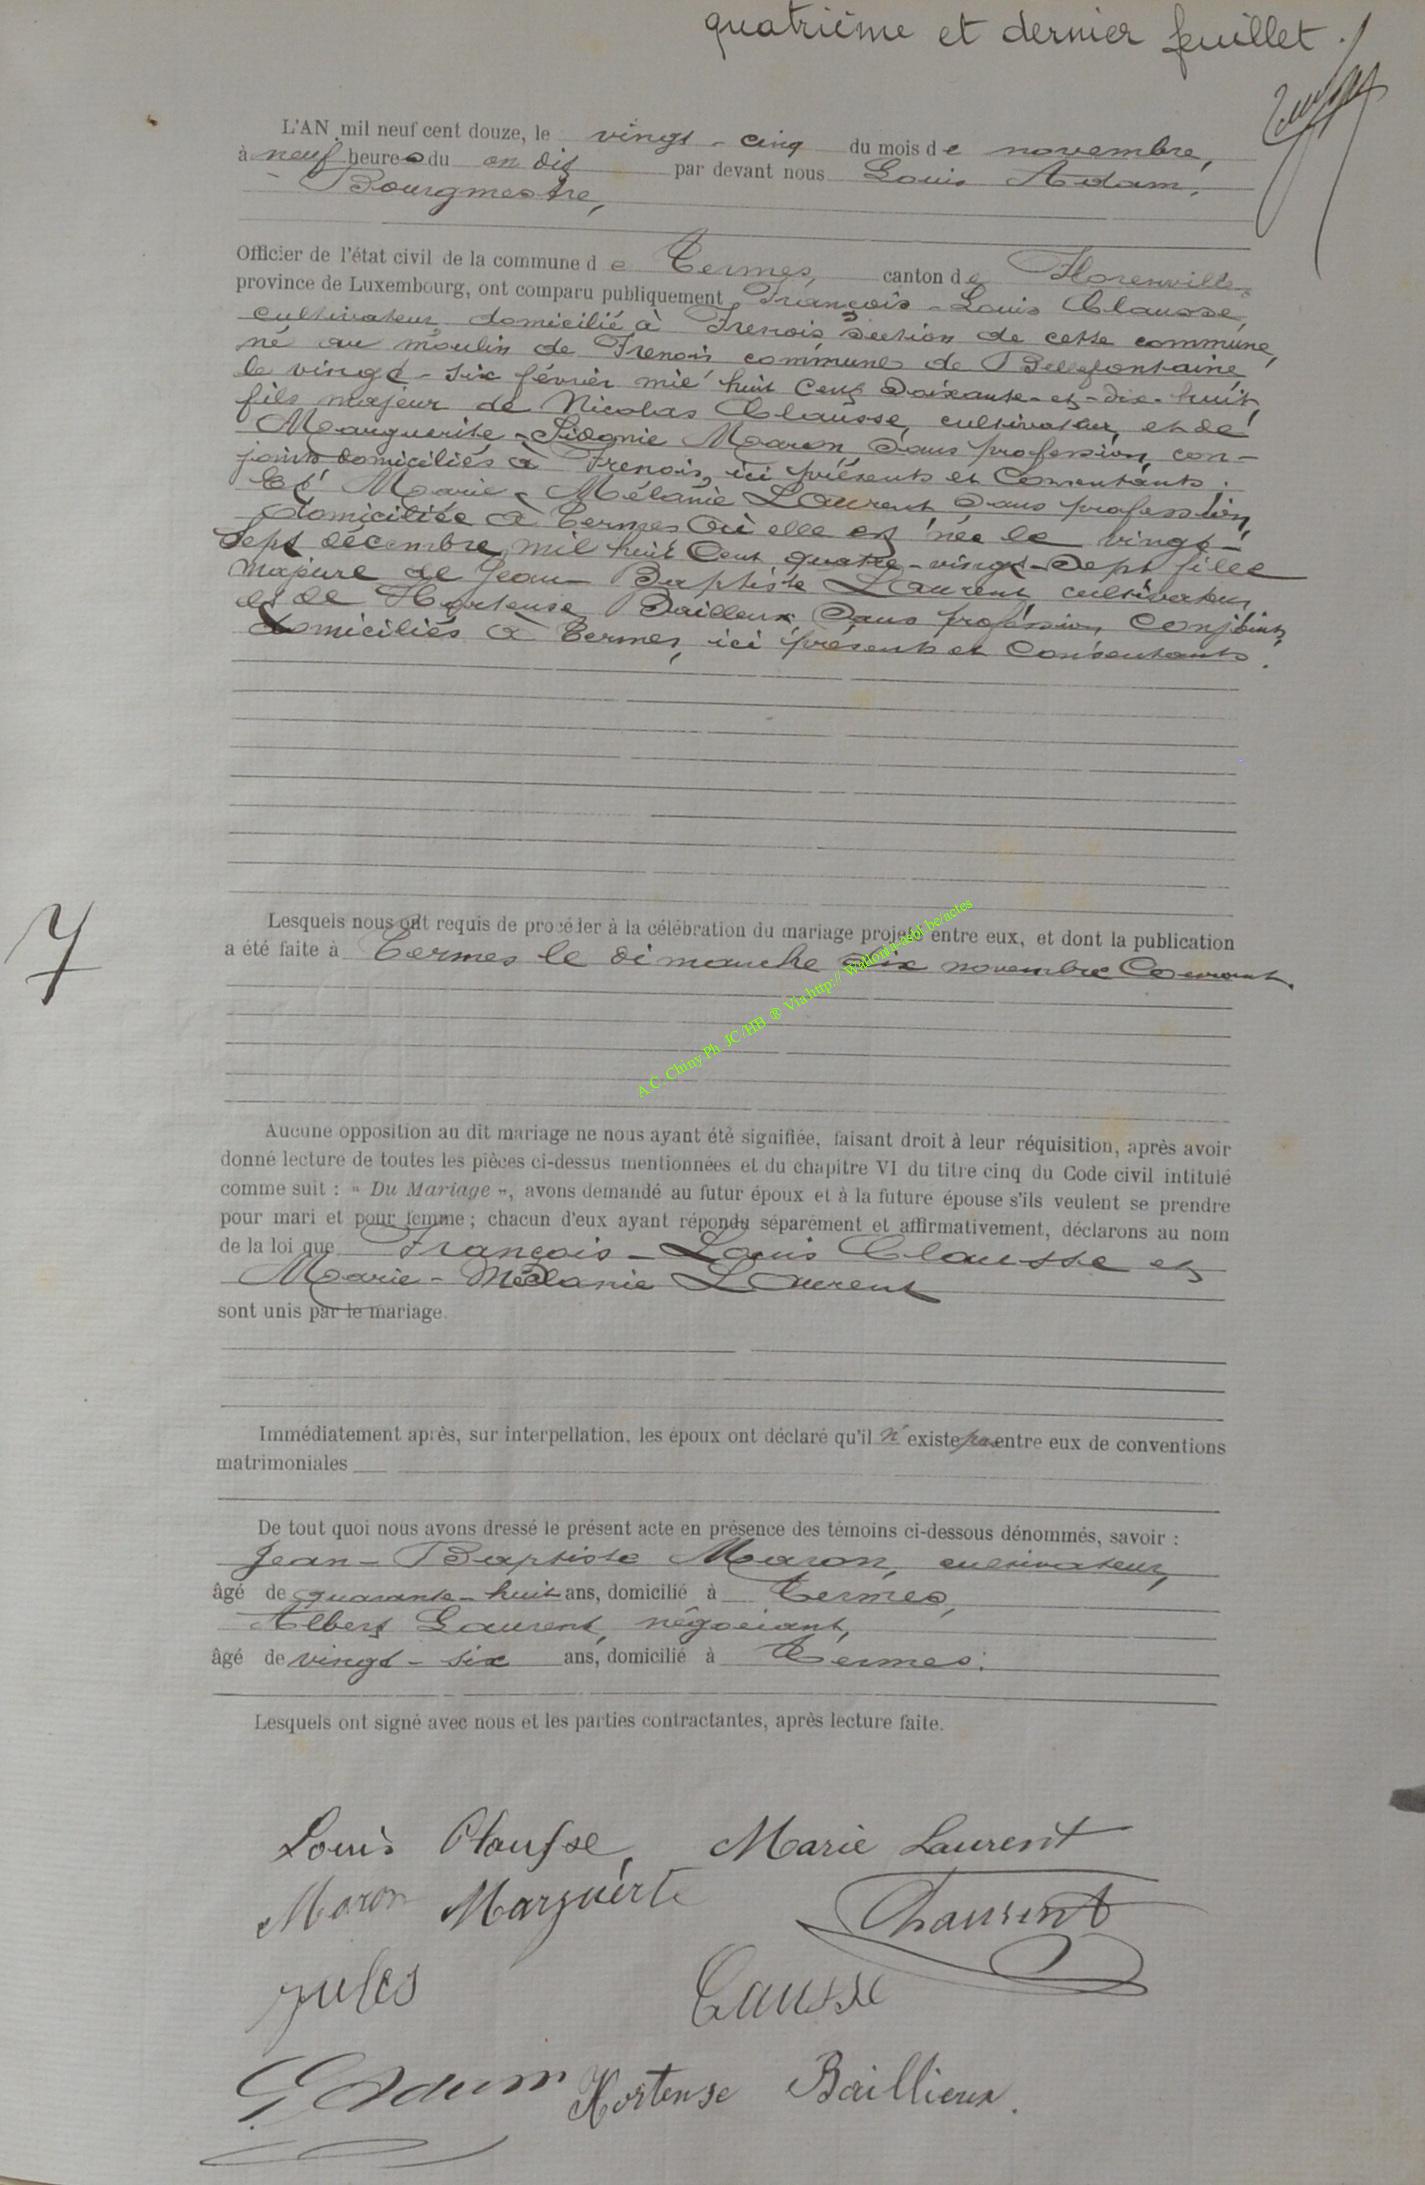 quatrième et dernier feuillet.
L'AN mil neuf cent douze, le vingt-cinq du mois de novembre,
à neuf heures du on dit par devant nous Louis Adam,
Bourgmestre,
Officier de l'état civil de la commune de Termes, canton de Florenville,
province de Luxembourg, ont comparu publiquement François-Louis Clausse,
cultivateur, domicilié à Frenois section de cette commune,
né au moulin de Frenois commune de Bellefontaine,
le vingt-six février mil huit cent soixante-et-dix-huit,
fils majeur de Nicolas Clausse, cultivateur, et de
Marguerite-Sidonie Maron sans profession, con-
joints domiciliés à Frenois, ici présents et consentants.
Et Marie-Mélanie Laurent sans profession,
domiciliée à Termes où elle est née le vingt-
sept décembre mil huit cent quatre-vingt-sept fille
majeure de Jean-Baptiste Laurent cultivateur,
et de Hortense Bailleux sans profession conjoints
domiciliés à Termes, ici présents et consentants.
Lesquels nous ont requis de procéder à la célébration du mariage projeté entre eux, et dont la publication
a été faite à Termes le dimanche dix novembre courant.
7
A.C. Chiny Ph JC/HB ® Via.http:// Wallonia-asbl.be/actes
Aucune opposition au dit mariage ne nous ayant été signifiée, faisant droit à leur réquisition, après avoir
donné lecture de toutes les pièces ci-dessus mentionnées et du chapitre VI du titre cinq du Code civil intitulé
comme suit : « Du Mariage », avons demandé au futur époux et à la future épouse s'ils veulent se prendre
pour mari et pour femme ; chacun d'eux ayant répondu séparément et affirmativement, déclarons au nom
de la loi que François-Louis Clausse et
Marie-Mélanie Laurent
sont unis par le mariage.
Immédiatement après, sur interpellation, les époux ont déclaré qu'il n'existe pas entre eux de conventions
matrimoniales
De tout quoi nous avons dressé le présent acte en présence des témoins ci-dessous dénommés, savoir :
Jean-Baptiste Maron, cultivateur,
âgé de quarante-huit ans, domicilié à Termes,
Albert Laurent, négociant,
âgé de vingt-six ans, domicilié à Termes.
Lesquels ont signé avec nous et les parties contractantes, après lecture faite.
Louis Clausse, Marie Laurent
Maron Marguerte
Jules Causse
Adam Hortense Baillieux.